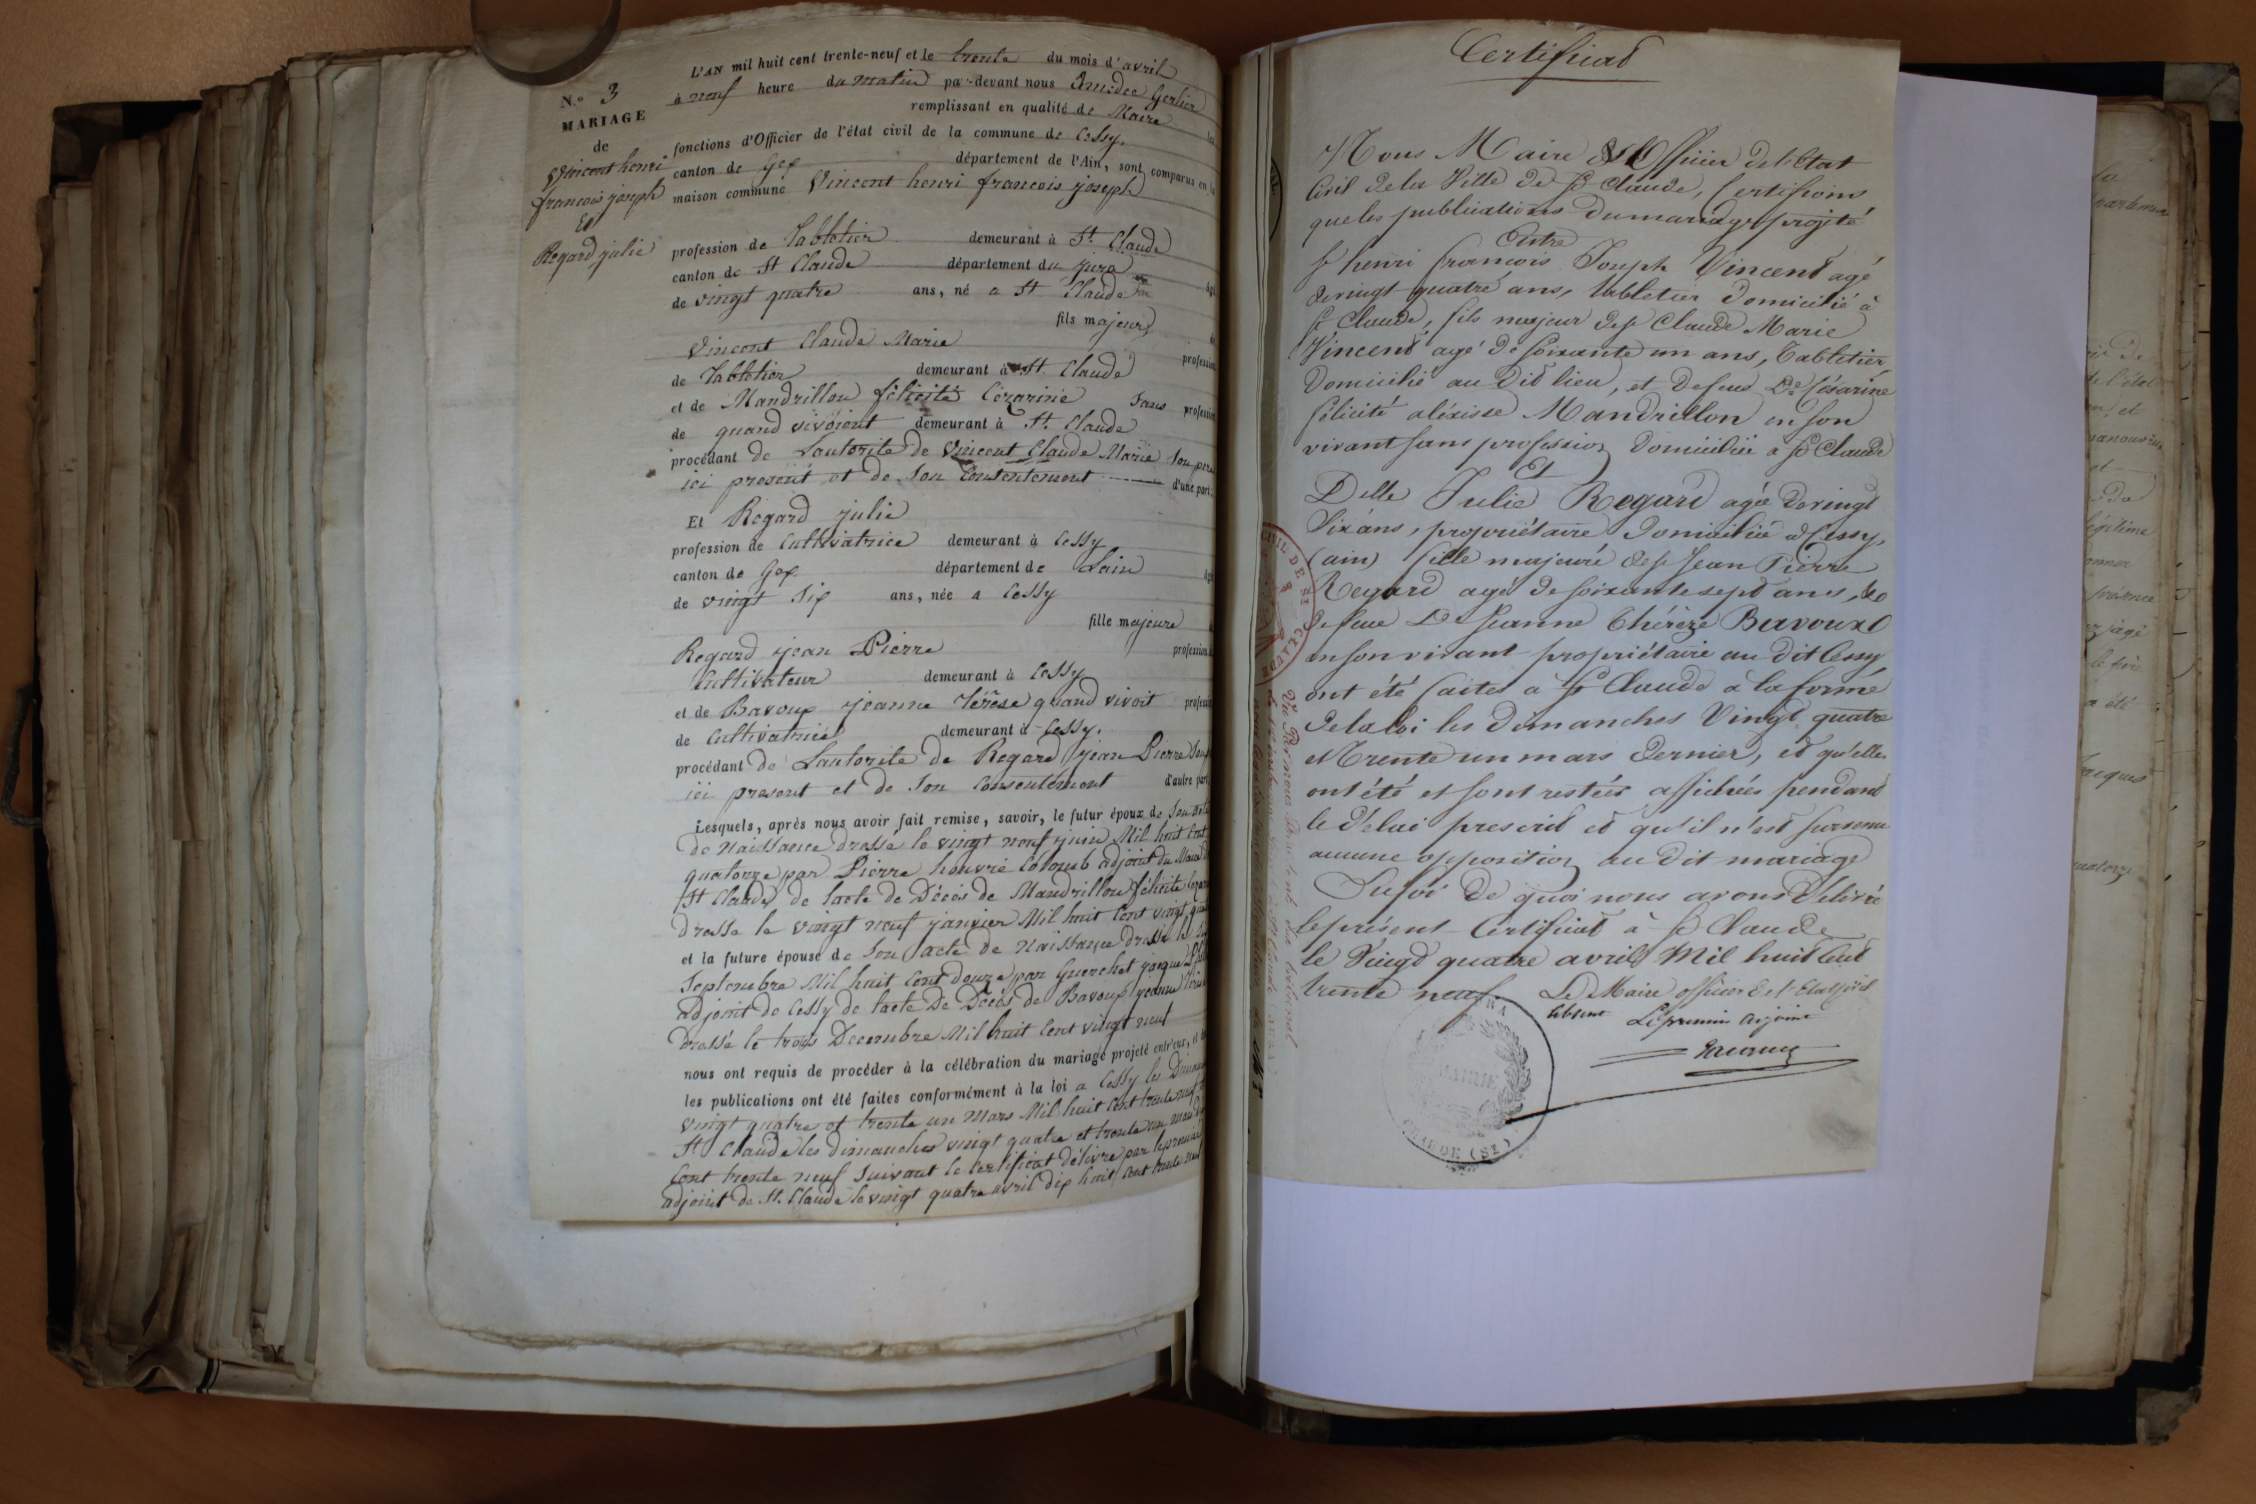 L'AN mil huit cent trente-neuf et le trente du mois d'avril
à neuf heure du matin par-devant nous Amédée Gerlier
remplissant en qualité de Maire
N.º 3
MARIAGE
de
Vincent henri
francois joseph
Et
Regard julie
fonctions d'Officier de l'état civil de la commune de Cessy.
canton de Gex département de l'Ain, sont comparus en la
maison commune Vincent henri francois joseph
profession de Tabletier demeurant à St. Claude
canton de St Claude département du jura
de vingt quatre ans, né a St Claude
fils majeur
Vincent Claude Marie
profession
de Tabletier demeurant à St Claude
et de Mandrillon félicité Cézarine Sans profession
de quand vivoient demeurant à St. Claude
procédant de Lautorité de Vincent Claude Marie Son père
ici présent et de Son Consentement d'une part.
Et Regard julie
profession de Cultivatrice demeurant à Cessy
canton de Gex département de Lain
de vingt Six ans, née a Cessy
fille majeure
Regard jean Pierre profession
Cultivateur demeurant à Cessy
et de Bavoux jeanne Térèse quand vivoit profession
de Cultivatrice demeurant à Cessy.
procédant de Lautorité de Regard jean Pierre
ici présent et de Son Consentement d'autre part
Lesquels, après nous avoir fait remise, savoir, le futur époux de Son acte
de Naissance dressé le vingt neuf juin Mil huit Cent
quatorze par Pierre Colomb adjoint du Maire de
St Claude, de lacte de Décès de Mandrillon félicité
dressé le vingt neuf janvier Mil huit Cent vingt
et la future épouse de Son acte de Naissance dressé le
Septembre Mil huit Cent douze par Guerchet jacque
adjoint de Cessy de lacte De Décès de Bavoux jeanne
dressé le trois Decembre Mil huit Cent vingt neuf
nous ont requis de procéder à la célébration du mariage projeté entr'eux, et
les publications ont été faites conformément à la loi a Cessy les Dimanches
vingt quatre et trente un Mars Mil huit Cent trente neuf
St Claude les dimanches vingt quatre et trente un mars
Cent trente neuf Suivant le Certificat délivré par le premier
adjoint de St. Claude le vingt quatre avril dix huit Cent trente neuf
Certificat
Nous Maire Officier de l'état
Civil de la Ville de St Claude, Certifions
que les publications du mariage projeté
Entre
Sr henri françois Joseph Vincent agé
de vingt quatre ans, tabletier domicilié à
St Claude, fils majeur de Sr Claude Marie
Vincent agé de soixante un ans, Tabletier
Domicilié au dit lieu, et defeue De Césarine
félicité aléxisse Mandrillon en son
vivant sans profession Domiciliée à St Claude
Et
Delle Julie Regard agée de vingt
Six ans, propriétaire Domiciliée à Cessy,
(ain) fille majeure de Sr Jean Pierre
Regard agé de soixante sept ans, &
de feue De Jeanne Thérèze Bavoux
en son vivant propriétaire au dit Cessy
ont été faites à St Claude à la forme
de la loi les Dimanches Vingt quatre
et trente un mars Dernier, et qu'elles
ont été et sont restées affichées pendant
le délai prescrit et qu'il n'est survenu
aucune opposition au dit mariage
En foi de quoi nous avons délivré
le présent Certificat à St Claude
le Vingt quatre avril Mil huit Cent
trente neuf.
Le Maire officier de l'Etat Civil
absent Le premier adjoint
MAIRIE